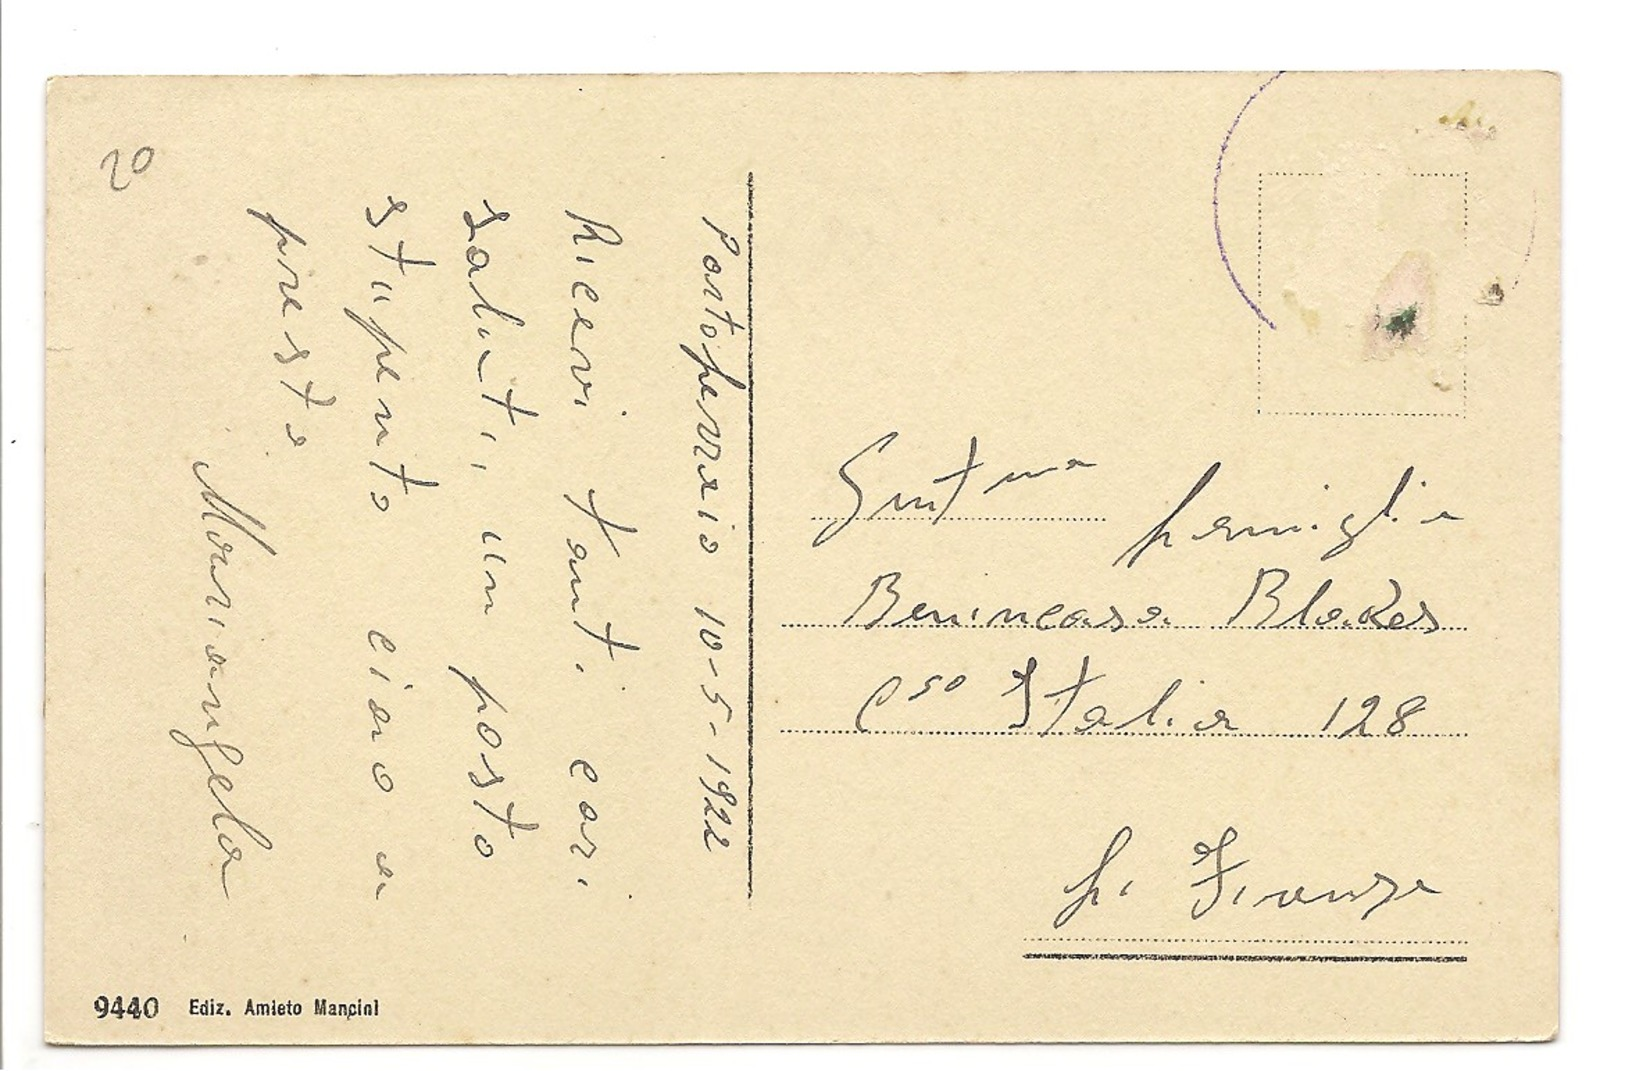 20
Portoferraio 10-5-1922
Ricevi tanti cari
saluti, un posto
stupento ciao a
presto
Mariangela
Gent ma famiglia
Benincasa Blakes
Cso Italia 128
Firenze
9440 Ediz. Amleto Mancini